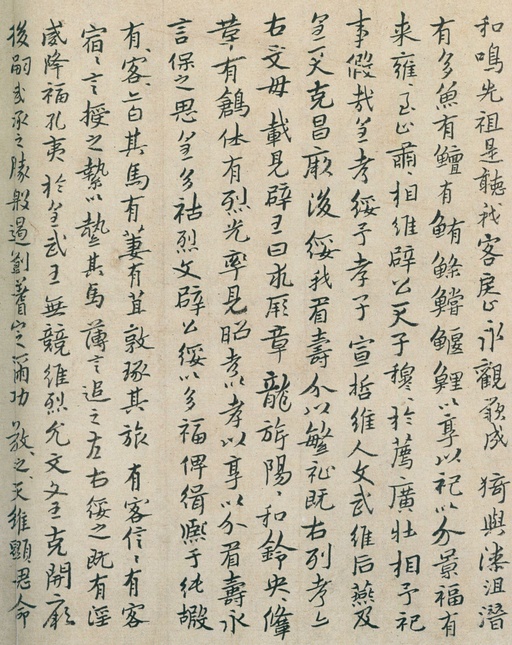 和鳴先祖是聽我客戾止永觀厥成 猗與漆沮潛
有多魚有鱣有鮪鰷鱨鰋鯉以享以祀以介景福有
来雍〻至止肅〻相維辟公天子穆〻於薦廣牡相予祀
事假哉皇考綏予孝子宣哲維人文武維后燕及
皇天克昌厥後綏我眉壽介以繁祉既右列考亦
右文母 載見辟王曰求厥章龍旂陽〻和鈴央〻鞗
革有鶬休有烈光率見昭考以孝以享以介眉壽永
言保之思皇多祜烈文辟公綏以多福俾緝熙于純嘏
有〻客〻亦白其馬有萋有苴敦琢其旅有客信〻有客
宿〻言授之縶以縶其馬薄言追之左右綏之既有淫
威降福孔夷 於皇武王無競維烈允文文王克開厥
後嗣武承之勝殷遏劉蓍定爾功 敬〻之〻天維顯思命